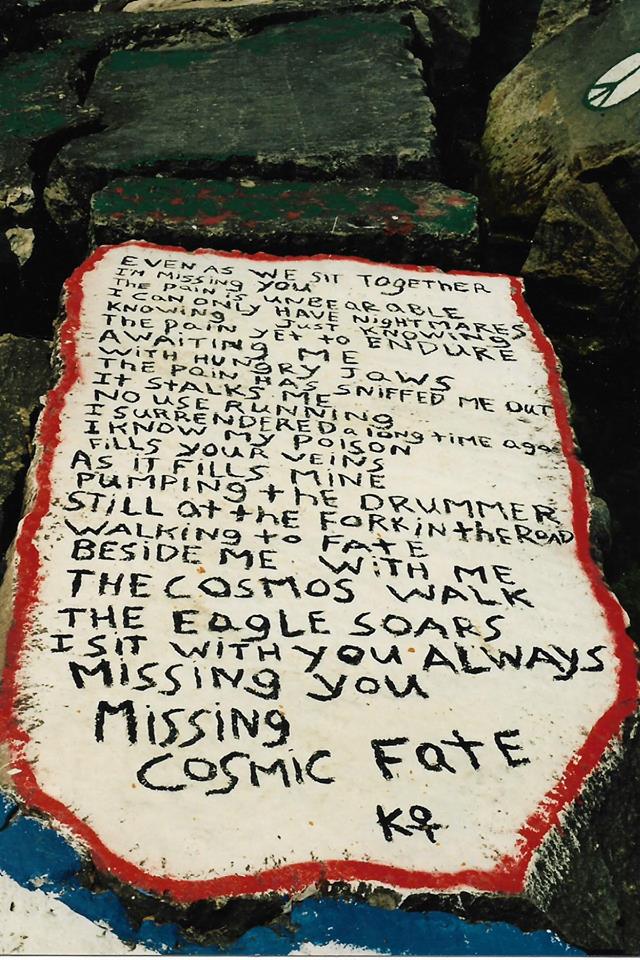 EVEN AS WE SIT TOgETHER
I'M MISSING YOU
THE PAIN IS UNBEARABLE
I CAN ONLY HAVE NIGHTMARES
KNOWING JUST KNOWING
The PAIN YET TO ENDURE
AWAITING ME
WITH HUNGRY JAWS
THE PAIN HAS SNIFFED ME OUT
IT STALKS ME
NO USE RUNNING
I SURRENDERED a long time ago
I KNOW MY POISON
FILLS YOUR VEINS
AS IT FILLS MINE
PUMPING the DRUMMER
STILL at the FORK in the ROAD
WALKING to FATE
BESIDE ME WITH ME
THE COSMOS WALK
THE EagLE SOARS
I SIT WITH YOU ALWAYS
MISSING YOU
MISSING
COSMIC FatE
K♀